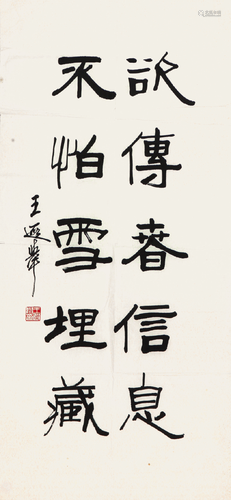 欲傳春信息
不怕雪埋藏
王遐舉